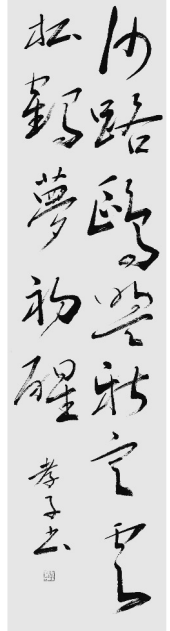 沙路鷗盟新定雲
松鶴夢初醒
孝子书